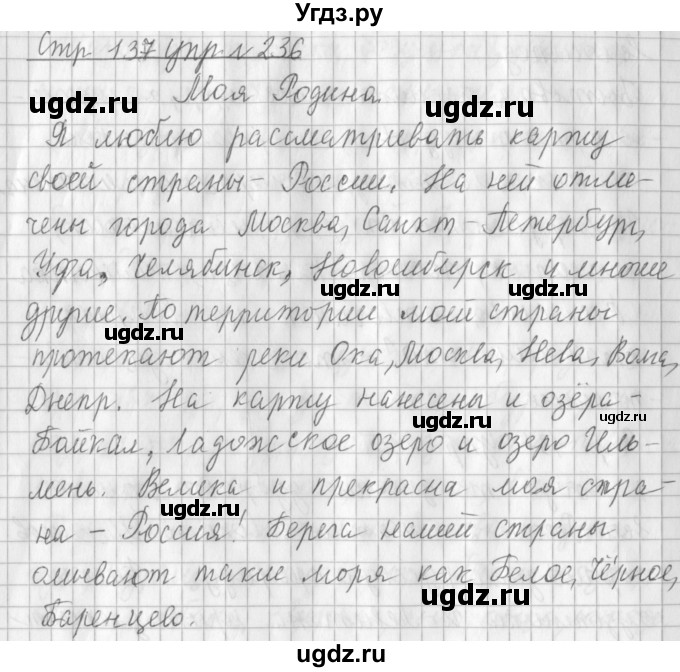 Угдз.ру
Стр 137 упр № 236
Моя Родина.
Я люблю рассматривать карту
своей страны - России. На ней отме-
чены города Москва, Санкт-Петербург,
Уфа, Челябинск, Новосибирск и многие
другие. По территории моей страны
протекают реки Ока, Москва, Нева, Волга,
Днепр. На карту нанесены и озёра -
Байкал, Ладожское озеро и озеро Иль-
мень. Велика и прекрасна моя стра-
на - Россия! Берега нашей страны
омывают такие моря как Белое, Чёрное,
Баренцево.
ugdz.ru
ugdz.ru
ugdz.ru
ugdz.ru
ugdz.ru
ugdz.ru
ugdz.ru
ugdz.ru
ugdz.ru
ugdz.ru
ugdz.ru